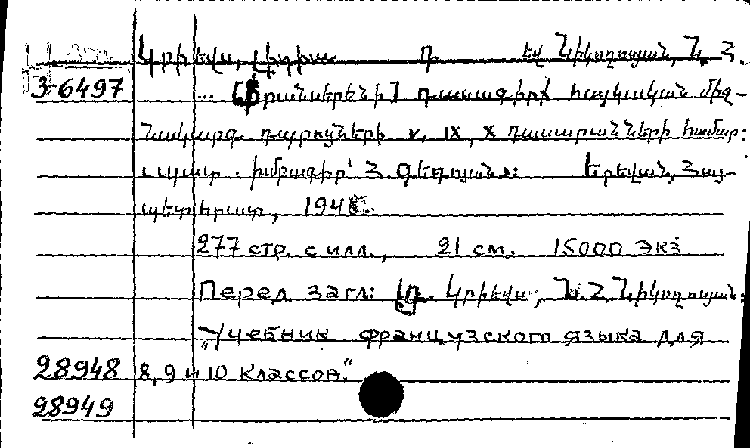 Կրիեվս, Լիդիա Պ. եվ Նիկողոսյան, Ն. Հ.
36497 ... [Ֆրանսերենի] դասագիրք հայկական միջ-
նակարգ դպրոցների IX, X դասարանների համար:
խմբագիր՝ Հ. Երեվան, Հայ-
պետհրատ, 194
277 стр. с илл., 21 см. 15000 экз
Перед загл: Լ. Կրիեվս, Ն. Հ. Նիկողոսյան:
„Учебник французского языка для
28948 8, 9 и 10 классов."
28949